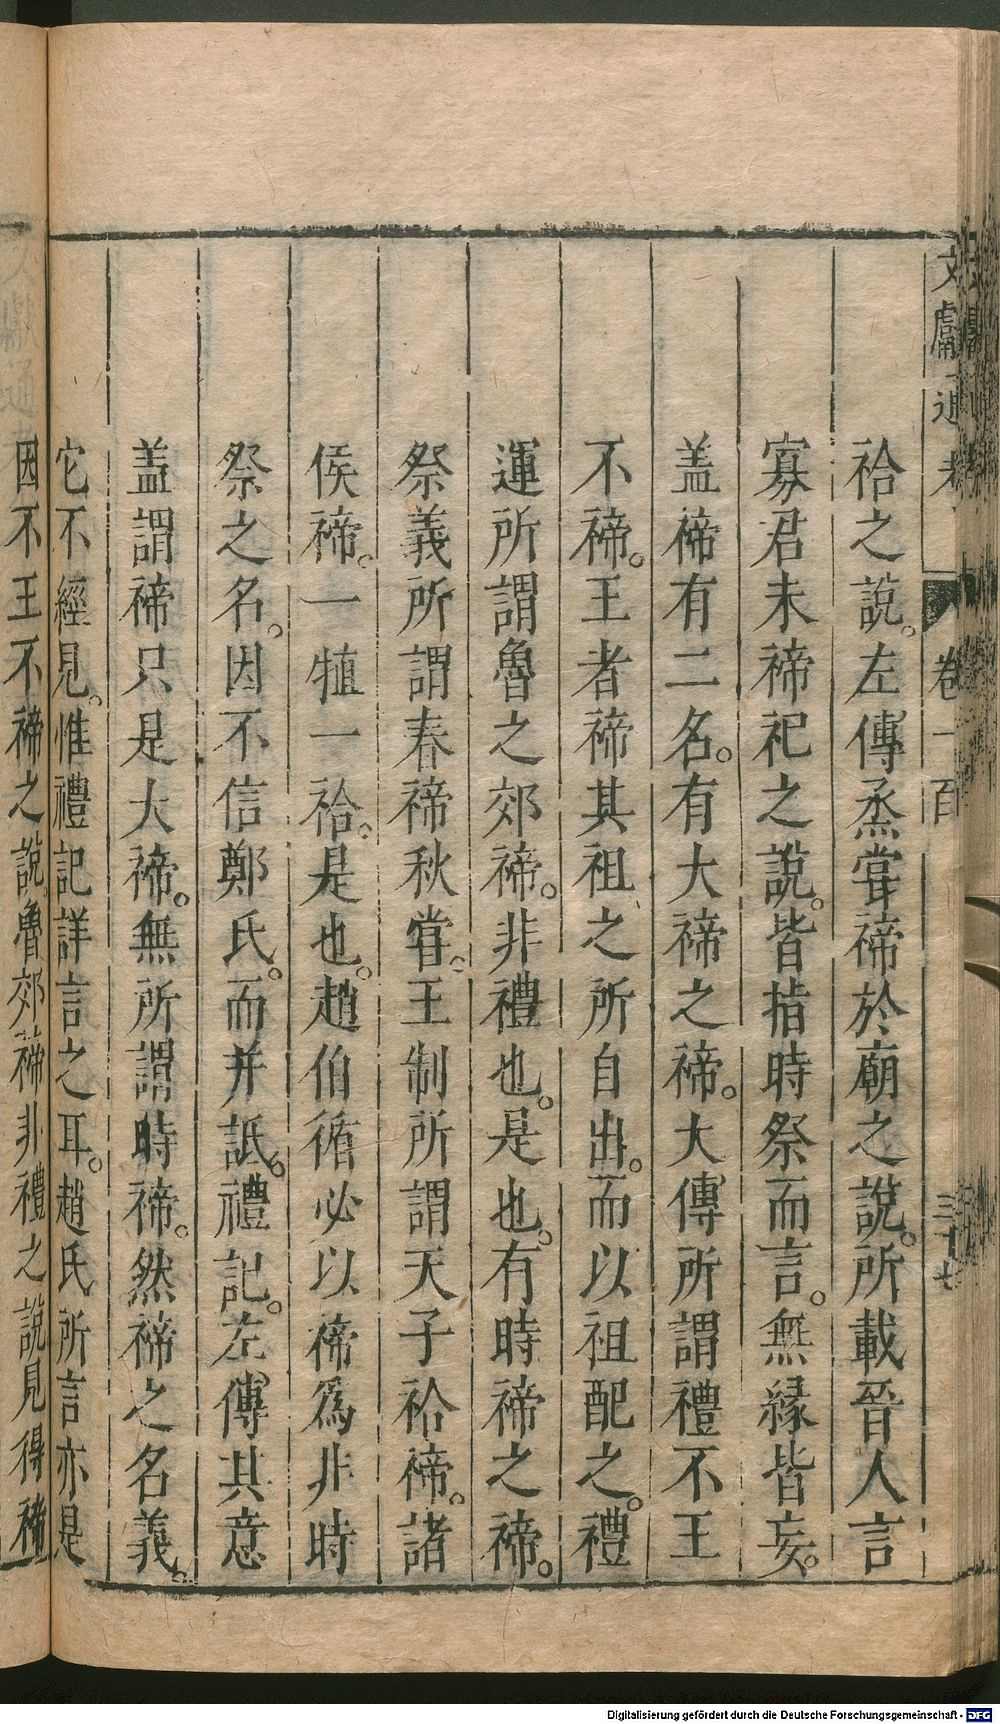 文獻通考 卷一百 三十七
祫之說。左傳烝嘗禘於廟之說。所載晉人言
寡君未禘祀之說。皆指時祭而言。無縁皆妄。
盖禘有二名。有大禘之禘。大傳所謂禮不王
不禘。王者禘其祖之所自出。而以祖配之。禮
運所謂魯之郊禘。非禮也。是也。有時禘之禘。
祭義所謂春禘秋甞。王制所謂天子祫禘。諸
侯禘。一犆一祫。是也。趙伯循必以禘爲非時
祭之名。因不信鄭氏。而并詆。禮記。左傳其意
盖謂禘只是大禘。無所謂時禘。然禘之名義。
它不經見。惟禮記詳言之耳。趙氏所言亦是
因不王不禘之說。魯郊禘非禮之說見得禘
Digitalisierung gefördert durch die Deutsche Forschungsgemeinschaft - DFG